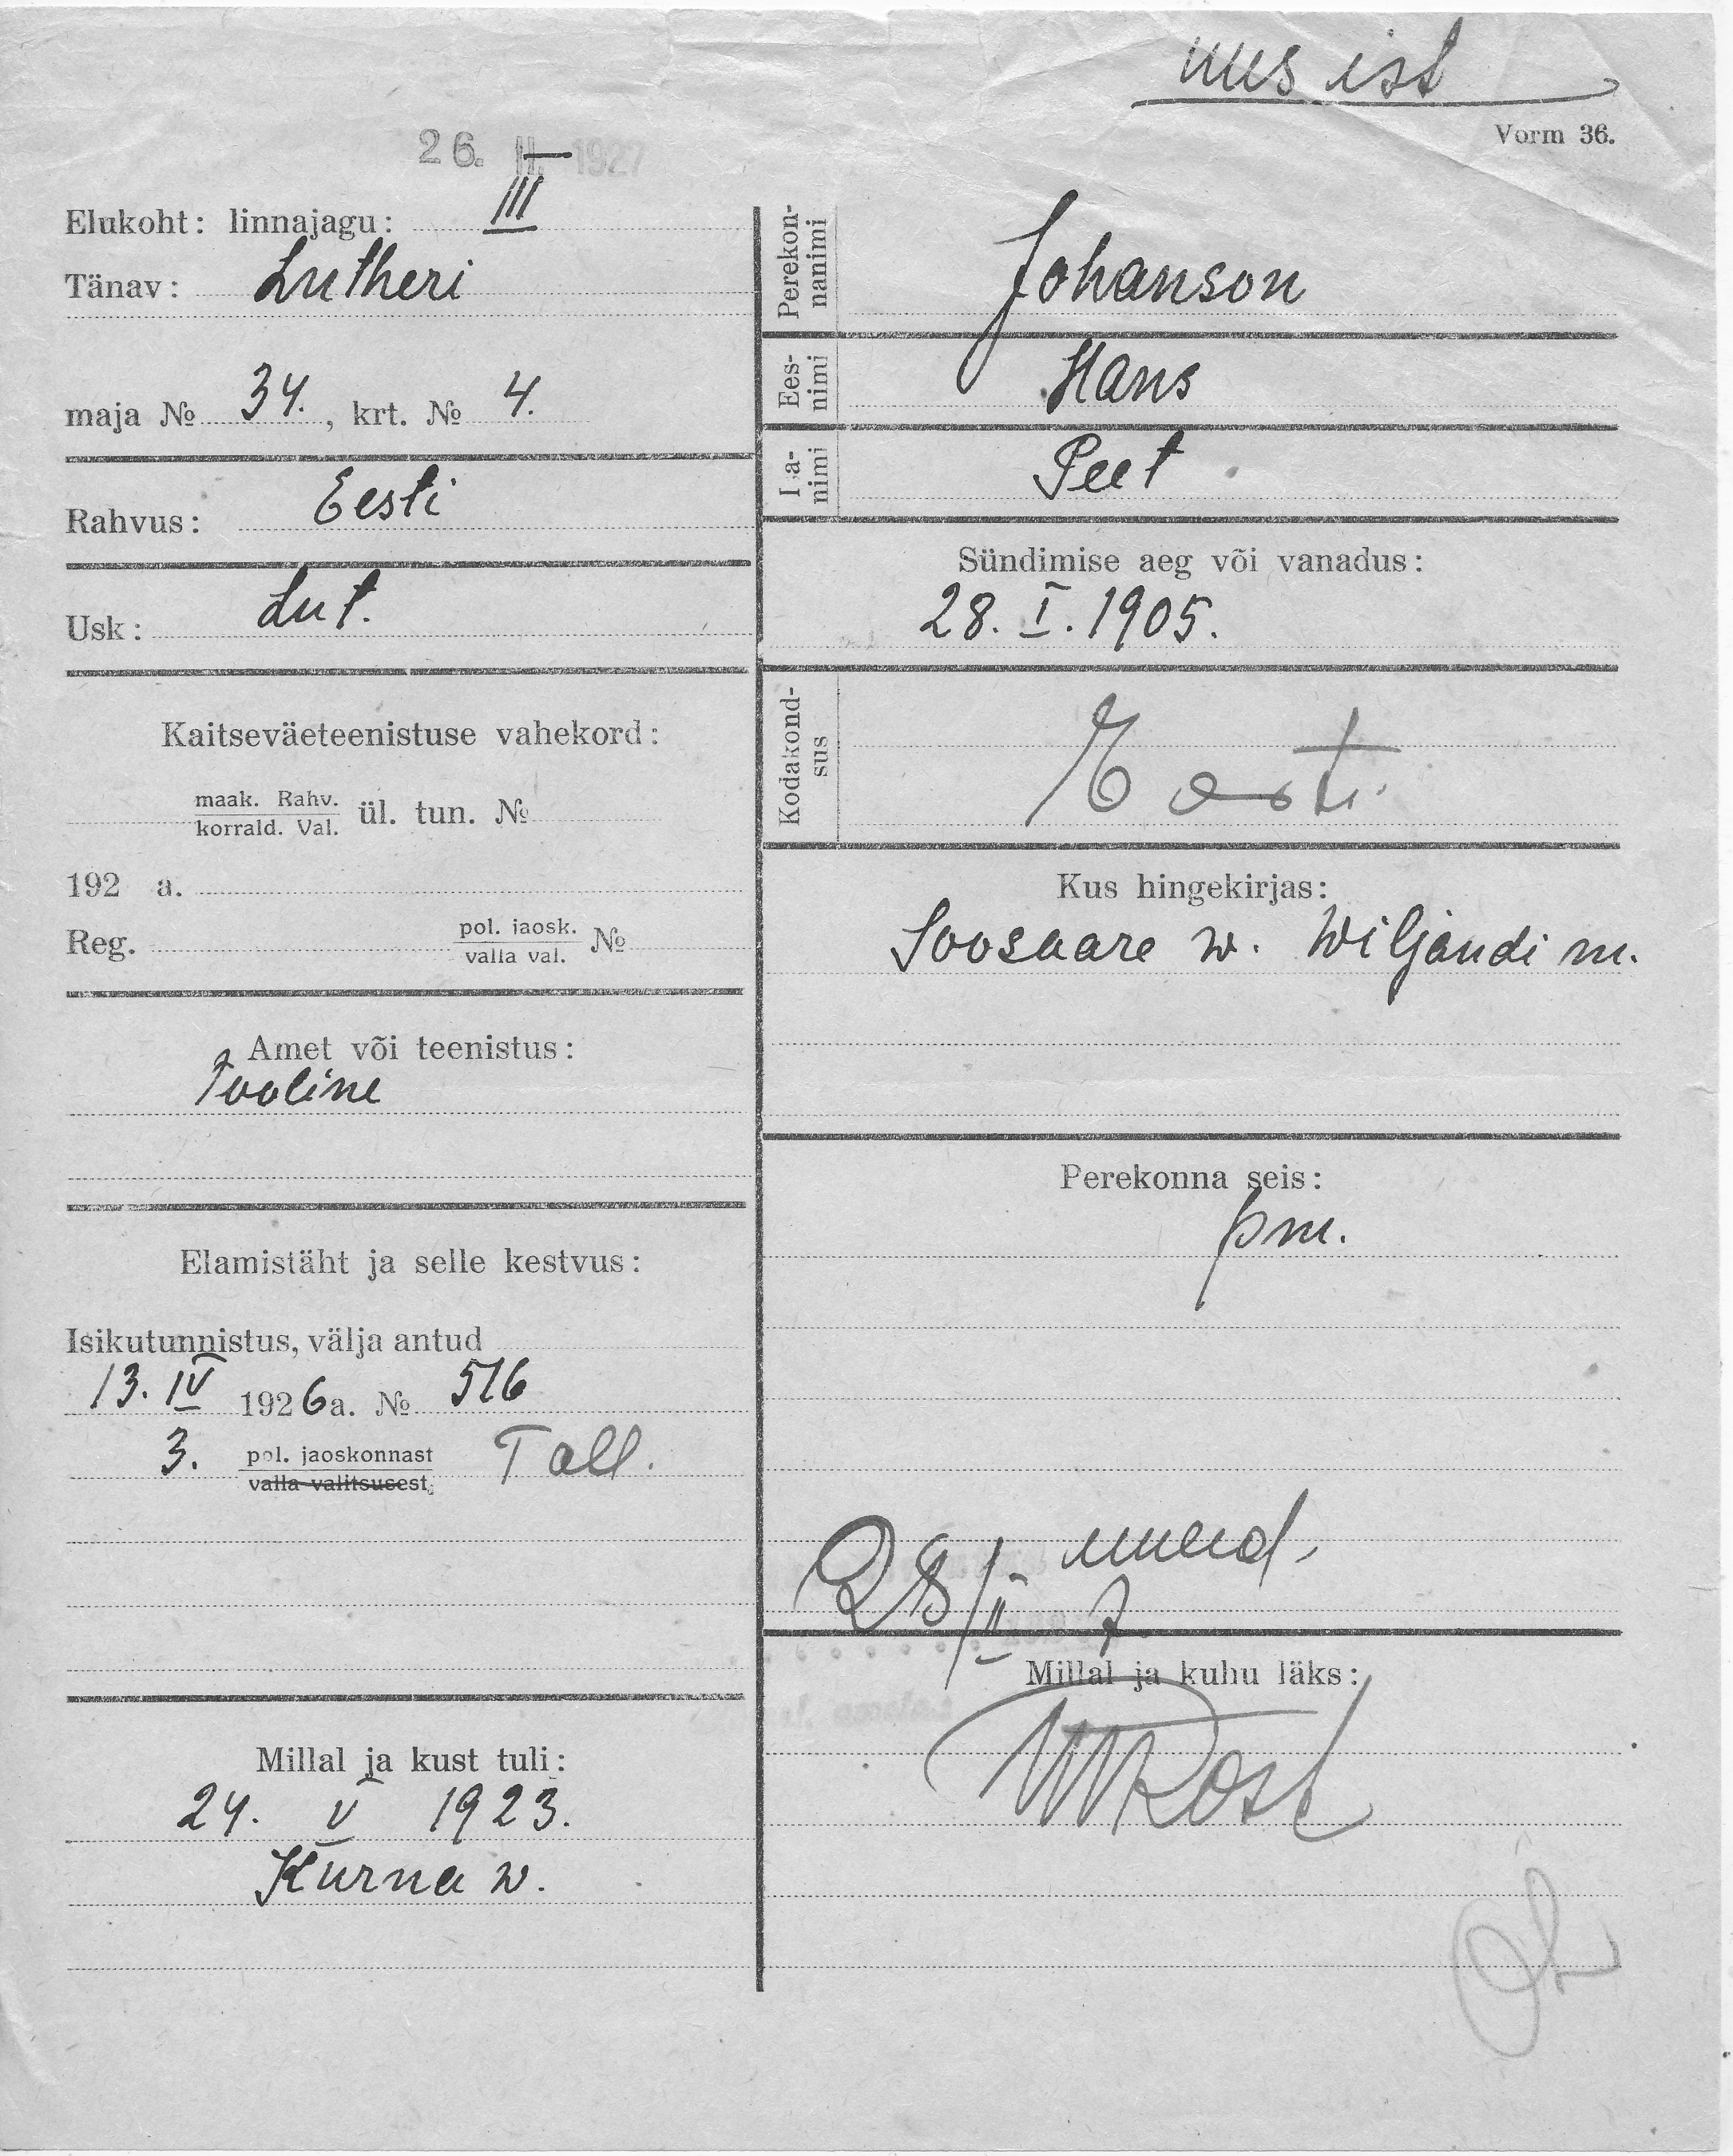 uus ist
Vorm 36.
26. II 1927
Elukoht: linnajagu: III
Tänav: Lutheri
maja № 34., krt. № 4.
Rahvus: Eesti
Usk: Lut.
Kaitseväeteenistuse vahekord:
maak. Rahv.
korrald. Val. ül. tun. №
192 a.
Reg. pol. jaosk.
valla val. №
Amet või teenistus:
Tööline
Elamistäht ja selle kestvus:
Isikutunnistus, välja antud
13. IV 1926 a. № 516
3. pol. jaoskonnast Tall.
valla valitsusest
Millal ja kust tuli:
24. V 1923.
Kurna w.
Perekon-
nanimi Johanson
Ees-
nimi Hans
Isa-
nimi Peet
Sündimise aeg või vanadus:
28. I. 1905.
Kodakond-
sus Eesti
Kus hingekirjas:
Soosaare w. Wiljandi m.
Perekonna seis:
pm.
28/II 7
Millal ja kuhu läks: